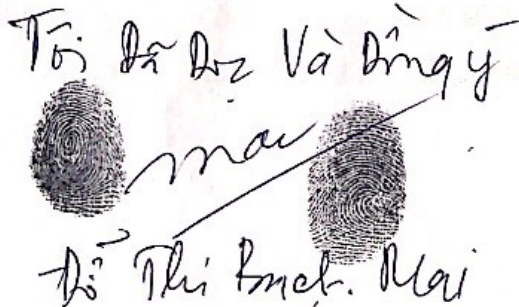 Tôi Đã Đọc Và Đồng ý
Mai
Đỗ Thị Bạch Mai